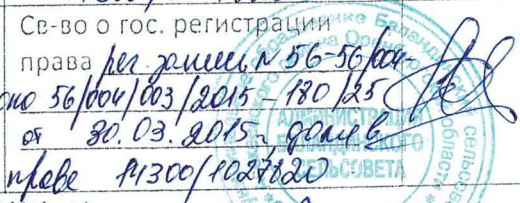 Св-во о гос. регистрации
права рег. запись N 56-56/004-
56/004/003/2015-180/25
от 30.03.2015, доля в
праве 14300/1027820
АДМИНИСТРАЦИЯ
БАЛАНДИНСКОГО
СЕЛЬСОВЕТА